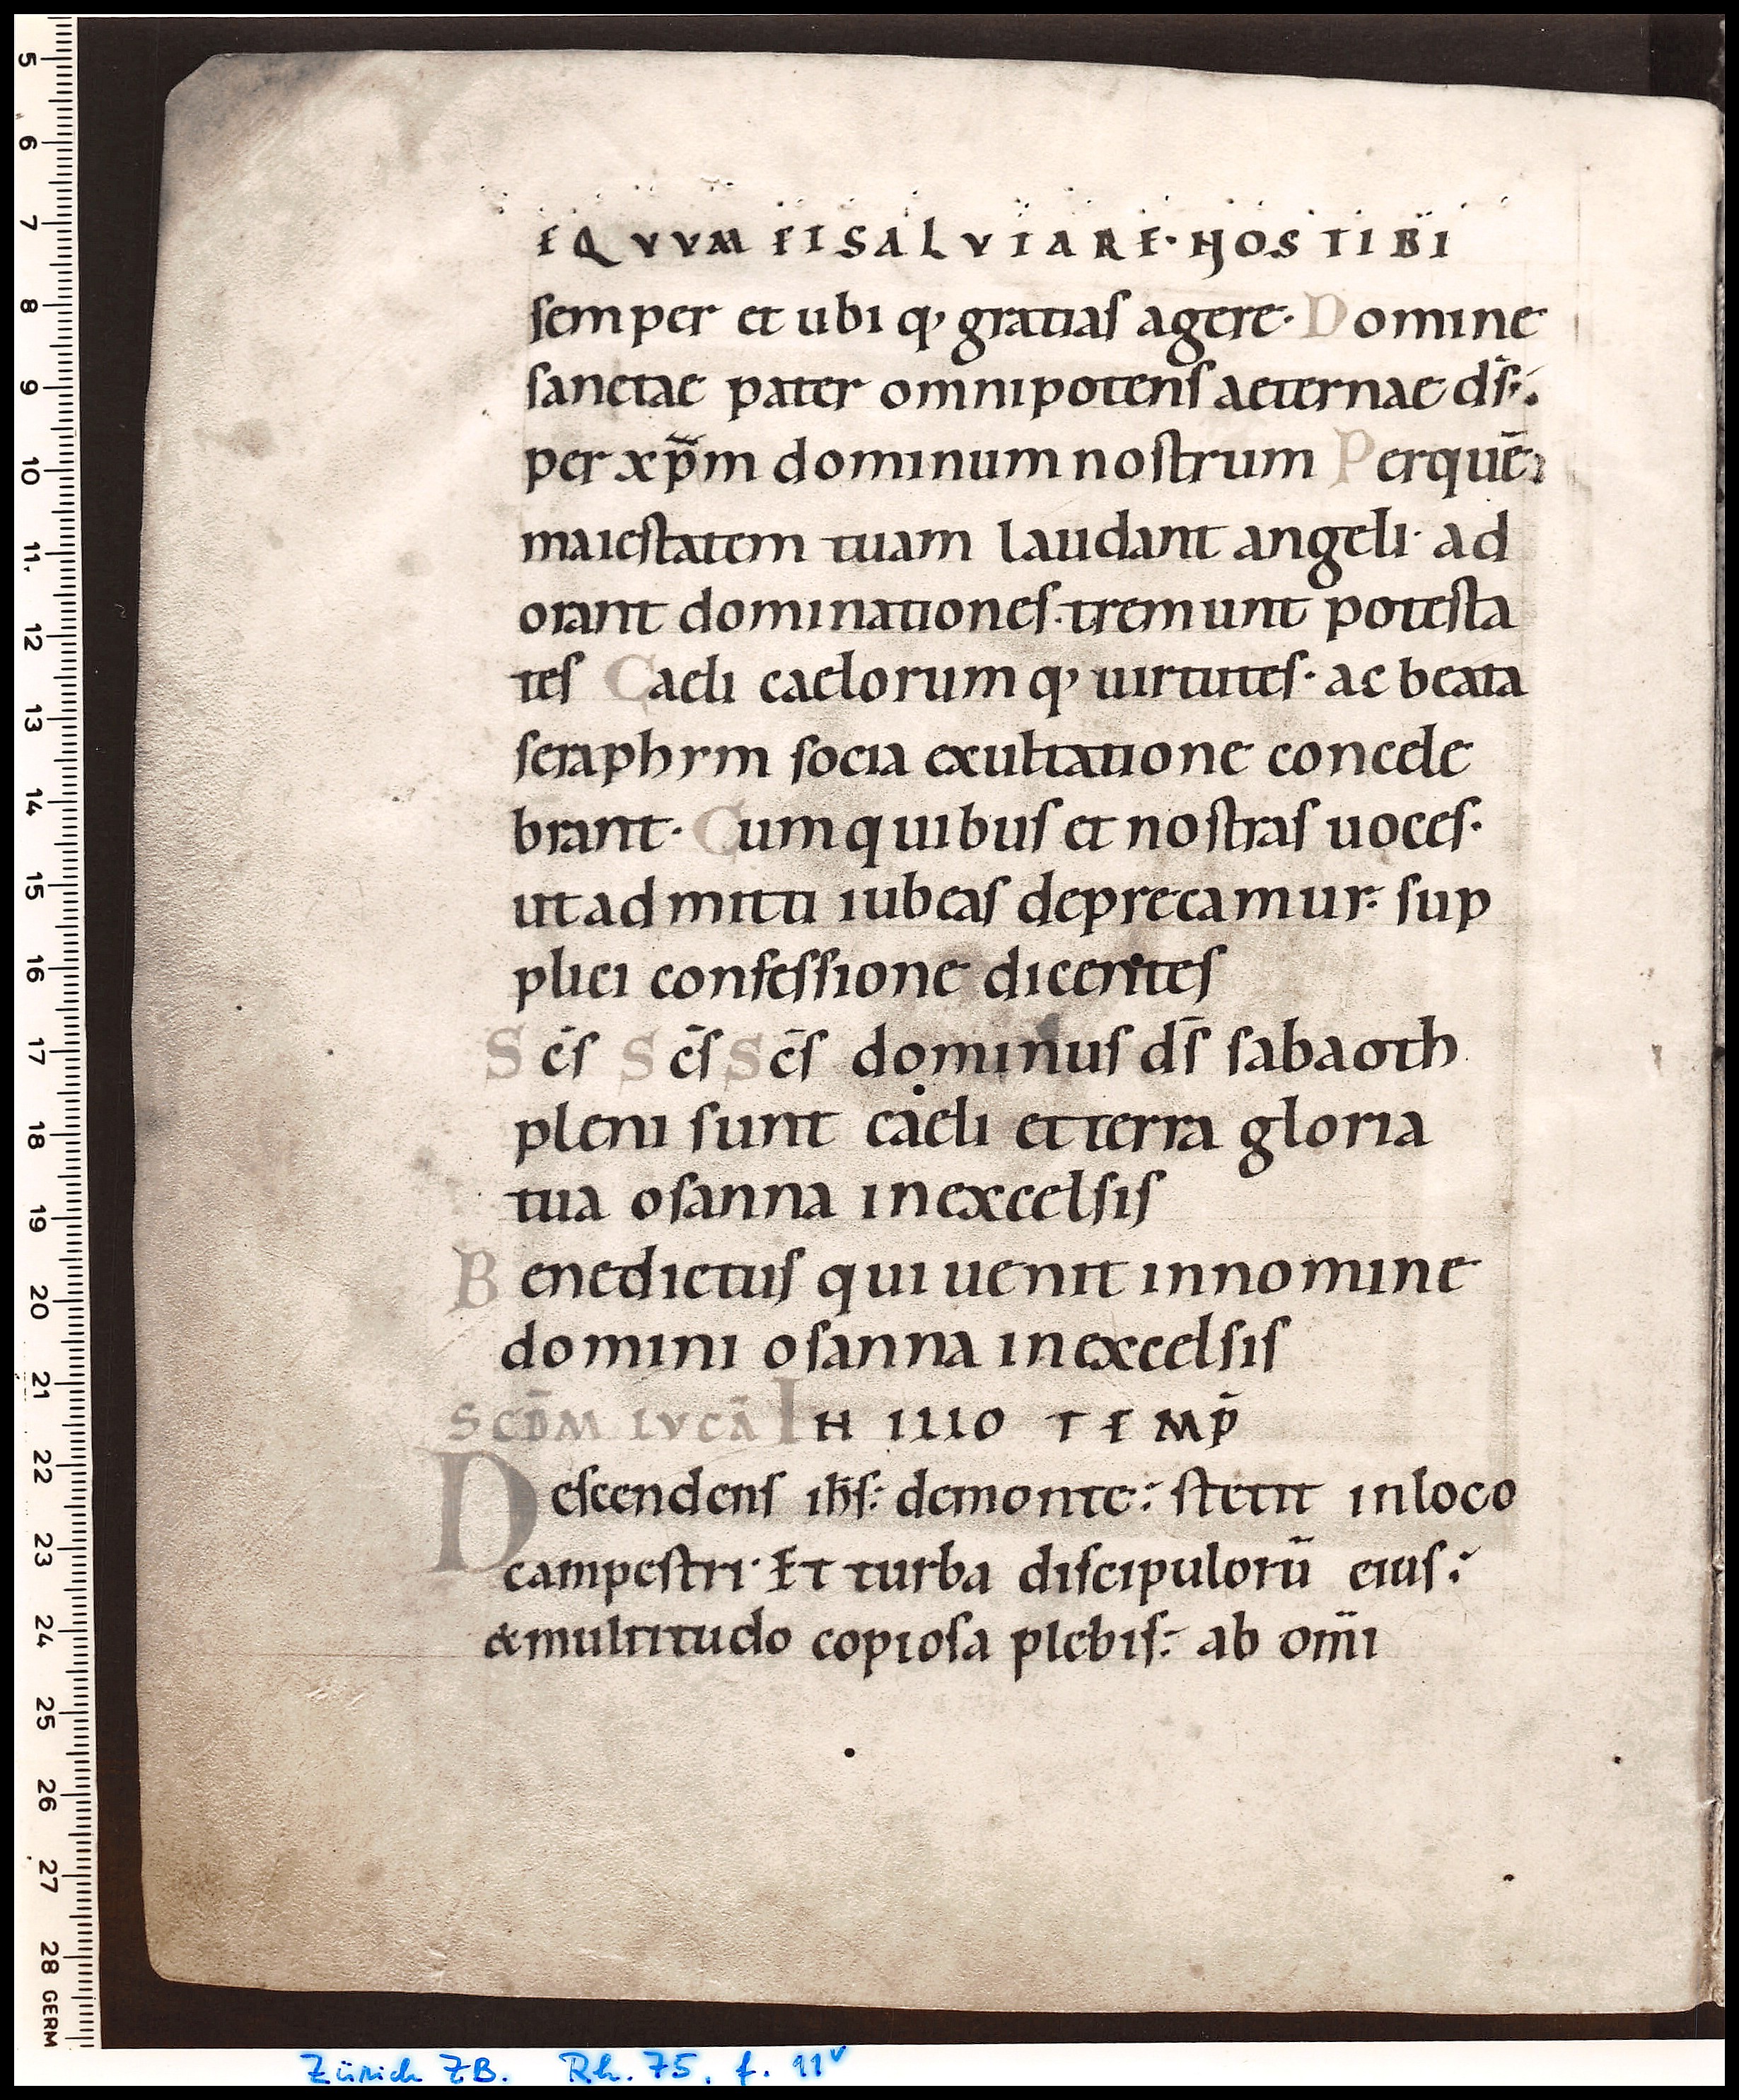 EQVVM ET SALVTARE· NOS TIBI
semper et ubi q, gratias agere· Domine
sanctae pater omnipotens aeternae ds̄:·
per xp̄m dominum nostrum Perquē
maiestatem tuam laudant angeli· ad
orant dominationes· tremunt potesta
tes Caeli caelorum q, uirtutes· ac beata
seraphym socia exultatione concele
brant· Cum quibus et nostras uoces·
ut admitti iubeas deprecamur: sup
plici confessione dicentes
Sc̄s Sc̄s Sc̄s dominus ds̄ sabaoth
pleni sunt caeli et terra gloria
tua osanna in excelsis
Benedictus qui uenit in nomine
domini osanna in excelsis
SCDM̄ LVCĀ IN ILLO TEMP̄
Descendens ihs̄: demonte: stetit inloco
campestri· Et turba discipulorū eius:
&multitudo copiosa plebis: ab om̄i
5
6
7
8
9
10
11
12
13
14
15
16
17
18
19
20
21
22
23
24
25
26
27
28 GERM
Zürich ZB. Rh. 75, f. 11v